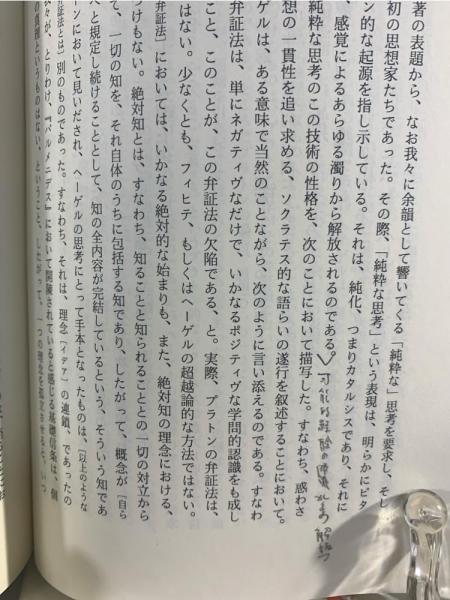 著の表題から、なお我々に余韻として響いてくる「純粋な」思考を要求し、そし
初の思想家たちであった。その際、「純粋な思考」という表現は、明らかにピタ
ン的な起源を指し示している。それは、純化、つまりカタルシスであり、それに
感覚によるあらゆる濁りから解放されるのである。
純粋な思考のこの技術の性格を、次のことにおいて描写した。すなわち、惑わさ
想の一貫性を追い求める、ソクラテス的な語らいの遂行を叙述することにおいて。
ゲルは、ある意味で当然のことながら、次のように言い添えるのである。すなわ
弁証法は、単にネガティヴなだけで、いかなるポジティヴな学問的認識をも成し
こと、このことが、この弁証法の欠陥である、と。実際、プラトンの弁証法は、
はない。少なくとも、フィヒテ、もしくはヘーゲルの超越論的な方法ではない。
弁証法〕においては、いかなる絶対的な始まりも、また、絶対知の理念における、
つけもない。絶対知とは、すなわち、知ることと知られることとの一切の対立から
て、一切の知を、それ自体のうちに包括する知であり、したがって、概念が〔自ら
へと規定し続けることとして、知の全内容が完結しているという、そういう知であ
ーンにおいて見いだされ、ヘーゲルの思考にとって手本となったものは、〔以上のような
弁証法とは〕別のものであった。すなわち、それは、理念〔イデア〕の連鎖、であったの
我々が、とりわけ、『パルメニデス』において開陳されていると感じる基礎信条は、個
の真理というものはない、ということ、したがって、一つの理念を